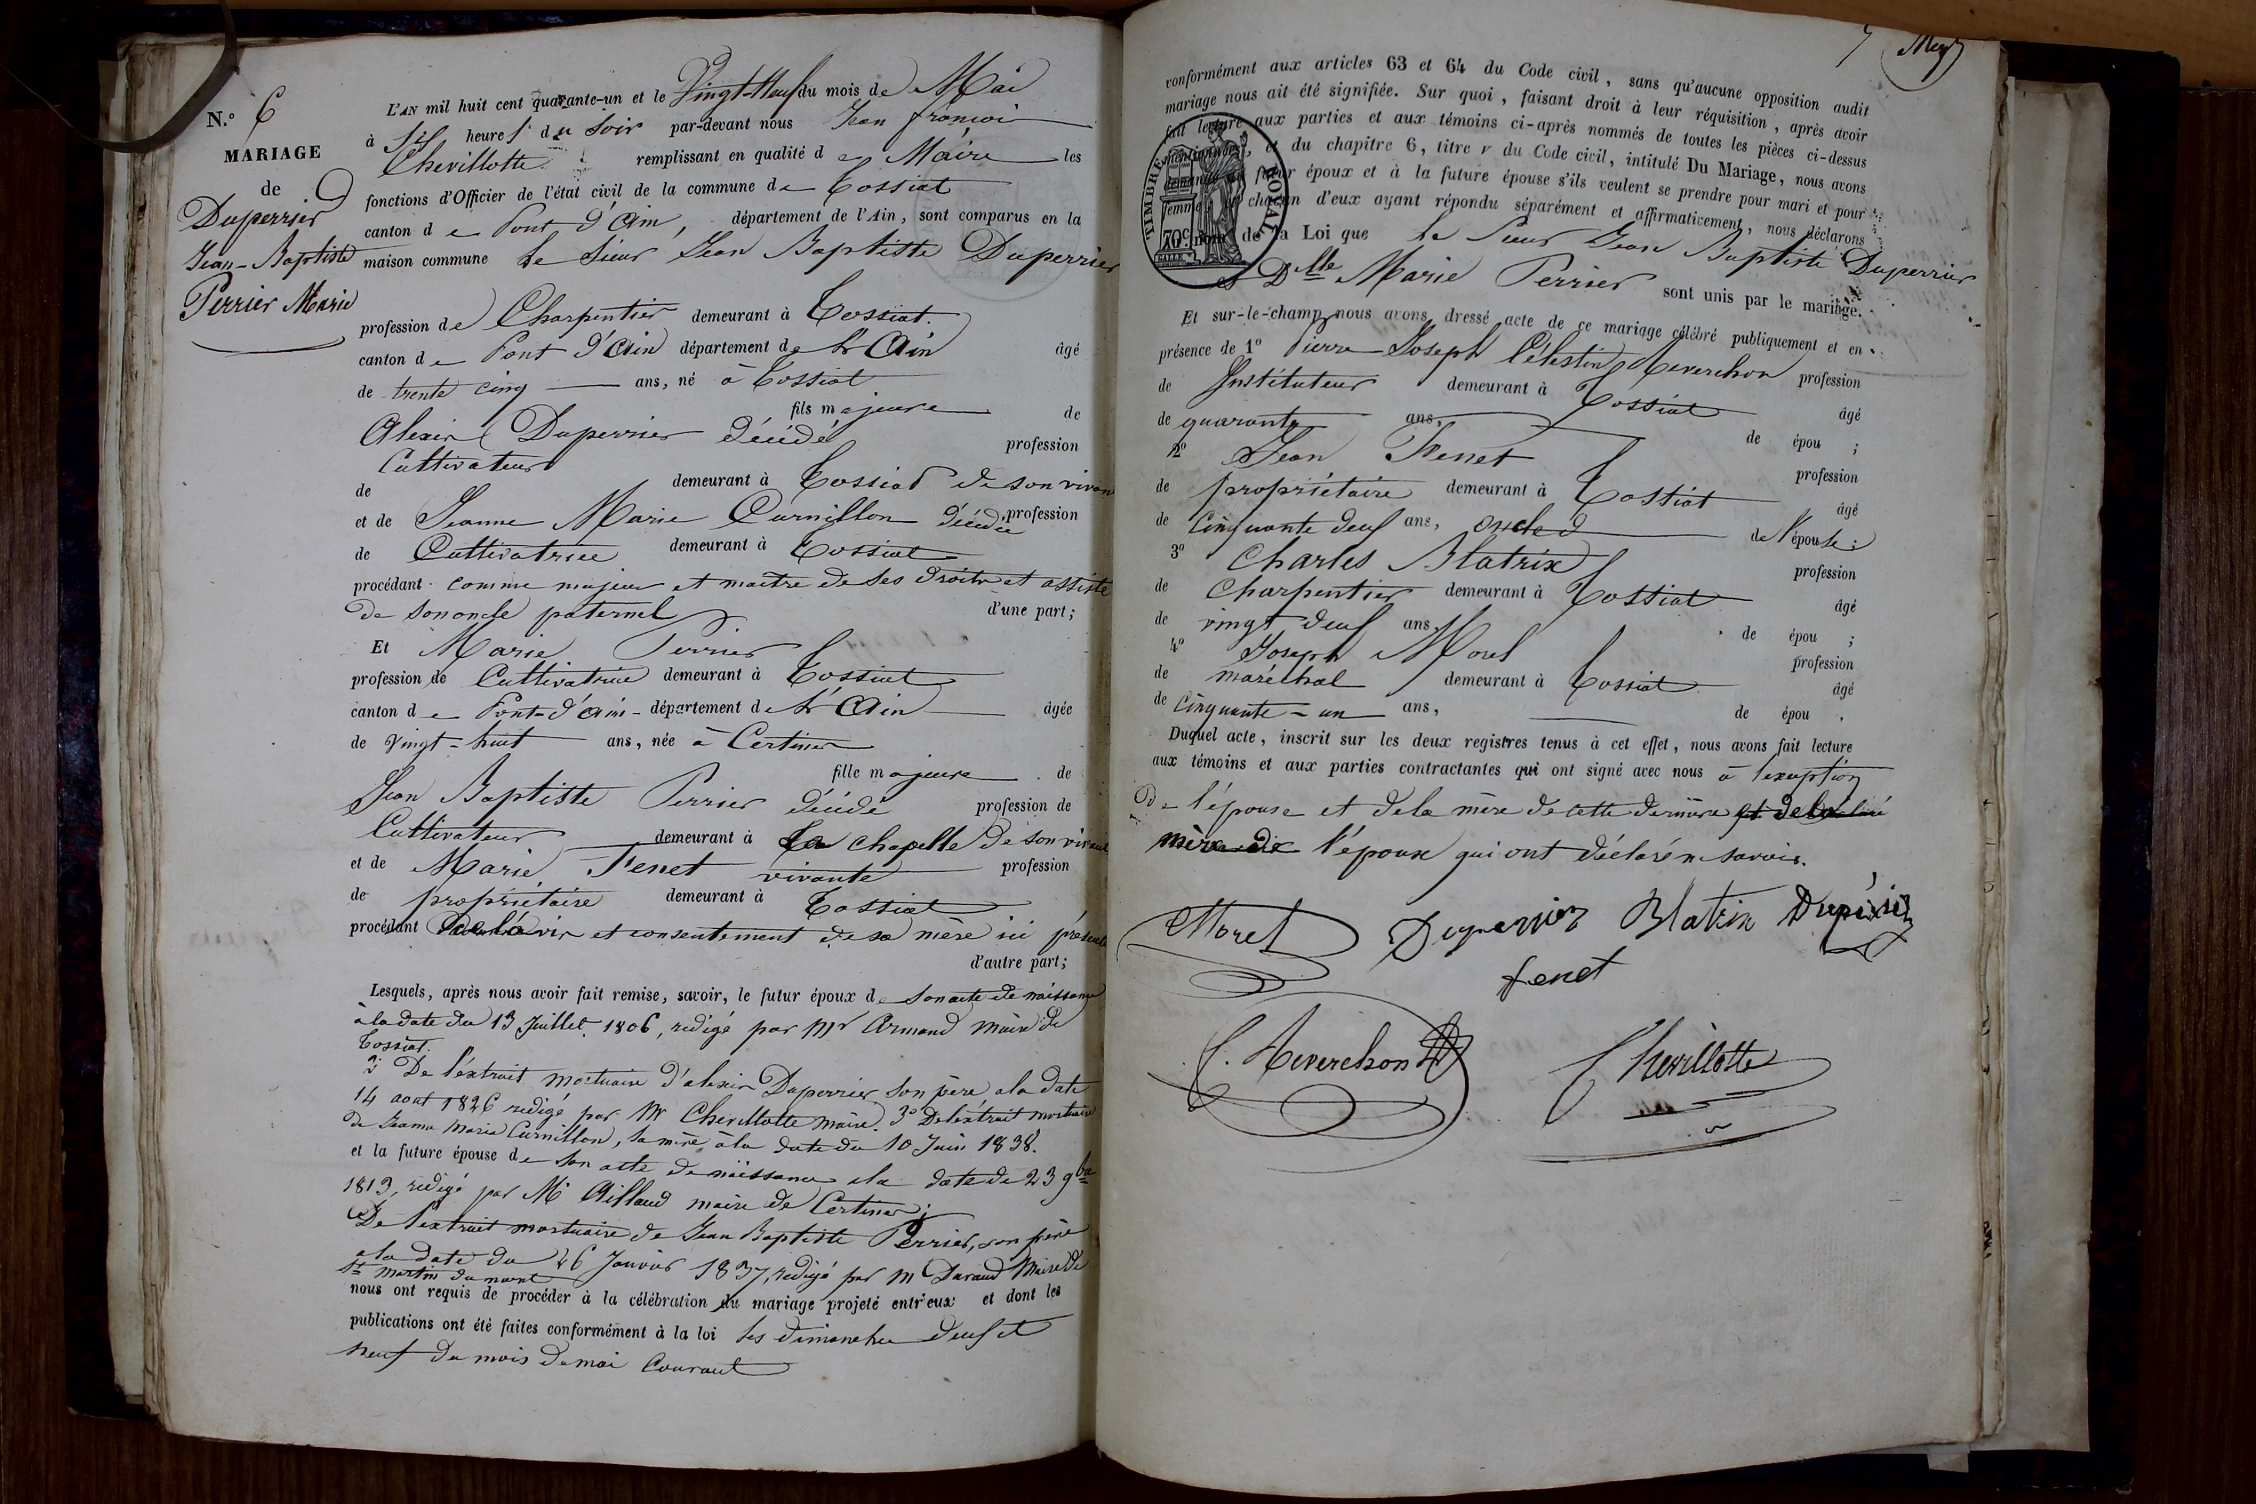 N.° 6
MARIAGE
de
Duperrier
Jean-Baptiste
Perrier Marie
L'AN mil huit cent quarante-un et le Vingt-Neuf du mois de Mai
à six heures du soir par-devant nous Jean françois
Chevillotte remplissant en qualité de Maire les
fonctions d'Officier de l'état civil de la commune de Tossiat
canton de Pont d'Ain, département de l'Ain, sont comparus en la
maison commune le Sieur Jean Baptiste Duperrier
profession de Charpentier demeurant à Tossiat.
canton de Pont d'Ain département de l'Ain âgé
de trente cinq ans, né à Tossiat
fils majeure de
Alexis Duperrier décédé profession
de Cultivateur demeurant à Tossiat de son vivant
et de Jeanne Marie Curnillon décédée profession
de Cultivatrice demeurant à Tossiat
procédant comme majeur et maitre de ses droits et assisté
de son oncle paternel d'une part;
Et Marie Perrier
profession de Cultivatrice demeurant à Tossiat
canton de Pont-d'ain département de l'Ain âgée
de Vingt-huit ans, née à Certines
fille majeure de
Jean Baptiste Perrier décédé profession de
Cultivateur demeurant à La Chapelle de son vivant
et de Marie Fenet vivante profession
de propriétaire demeurant à Tossiat
procédant de l'avis et consentement de sa mère ici présente
d'autre part;
Lesquels, après nous avoir fait remise, savoir, le futur époux de son acte de naissance
à la date du 13 Juillet 1806, redigé par Mr Armand maire de
Tossiat.
2° De l'éxtrait mortuaire d'alexis Duperrier son père a la date
14 aout 1826 redigé par Mr Chevillotte maire. 3° De l'éxtrait mortuaire
de Jeanne Marie Curnillon, sa mère à la date du 10 Juin 1838.
et la future épouse de son acte de naissance a la date du 23 9bre
1813, redigé par Mr Aillaud maire de Certines;
De l'extrait mortuaire de Jean Baptiste Perrier, son père
a la date du 26 Janvier 1837, redigé par M Daraud Maire de
St Martin du mont
nous ont requis de procéder à la célébration du mariage projeté entr'eux et dont les
publications ont été faites conformément à la loi les dimanches deux et
neuf du mois de mai Courant
7
conformément aux articles 63 et 64 du Code civil, sans qu'aucune opposition audit
mariage nous ait été signifiée. Sur quoi, faisant droit à leur réquisition, après avoir
fait lecture aux parties et aux témoins ci-après nommés de toutes les pièces ci-dessus
mentionnées, et du chapitre 6, titre v du Code civil, intitulé Du Mariage, nous avons
demandé au futur époux et à la future épouse s'ils veulent se prendre pour mari et pour
femme, et chacun d'eux ayant répondu séparément et affirmativement, nous déclarons
au nom de la Loi que le Sieur Jean Baptiste Duperrier
TIMBRE ROYAL
70c
et Dlle Marie Perrier sont unis par le mariage.
Et sur-le-champ nous avons dressé acte de ce mariage célébré publiquement et en
présence de 1° Pierre Joseph Célestin Reverchon profession
de Instituteur demeurant à Tossiat âgé
de quarante ans, de épou ;
2° Jean Fenet profession
de propriétaire demeurant à Tossiat âgé
de Cinquante deux ans, oncle de l'épouse;
3° Charles Blatrix profession
de Charpentier demeurant à Tossiat âgé
de vingt deux ans, de épou ;
4° Joseph Morel profession
de maréchal demeurant à Tossiat âgé
de Cinquante-un ans, de épou .
Duquel acte, inscrit sur les deux registres tenus à cet effet, nous avons fait lecture
aux témoins et aux parties contractantes qui ont signé avec nous à l'exception
De l'épouse et de la mère de cette dernière et de la
mère de l'époux qui ont déclaré ne savoir.
Morel Duperrier Blatrix Dupérier
fenet
C. Reverchon
Chevillotte